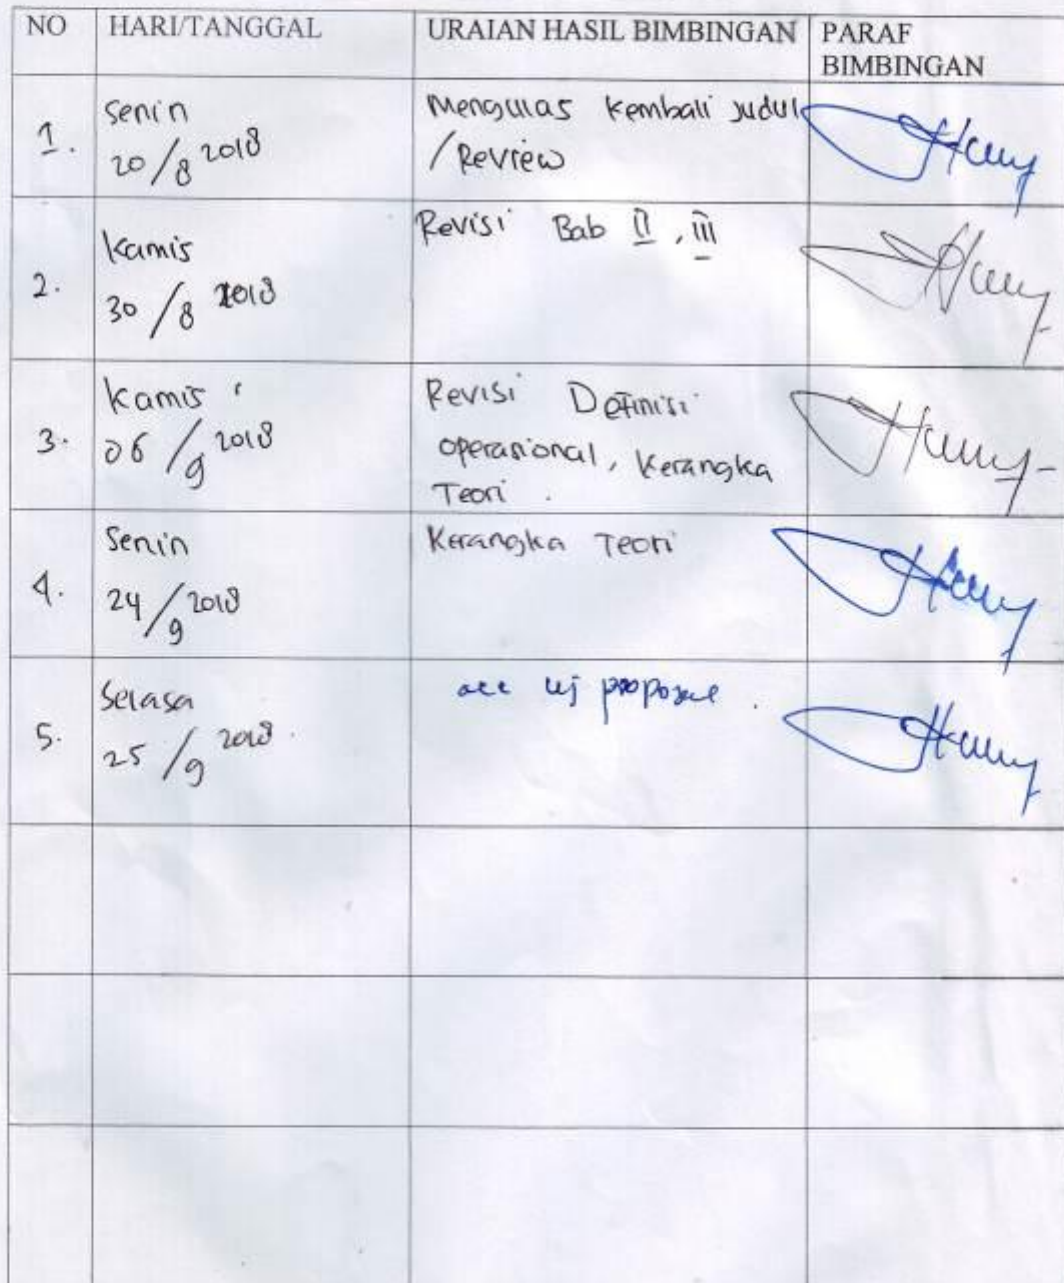 NO HARI/TANGGAL URAIAN HASIL BIMBINGAN PARAF
BIMBINGAN
1. Senin
20/8 2018
Mengulas Kembali Judul
/Review
2. Kamis
30/8 2018
Revisi Bab II, III
3. Kamis
06/9 2018
Revisi Definisi
operasional, Kerangka
Teori.
4. Senin
24/9 2018
Kerangka Teori
5. Selasa
25/9 2018.
acc uj proposal.